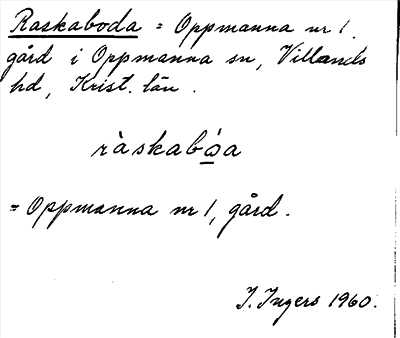 Raskaboda = Oppmanna nr 1.
gård i Oppmanna sn, Villands
hd, Krist. län.
ràskabó̲a
= Oppmanna nr 1, gård.
I. Ingers 1960.